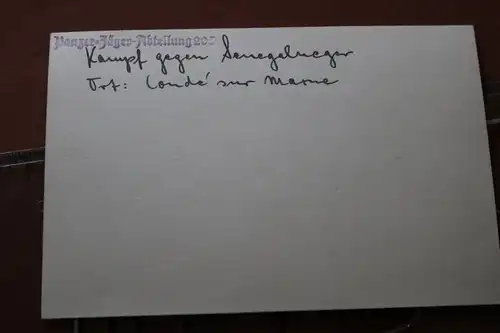 Panzer-Jäger-Abteilung 20
Kampf gegen Senegalneger
Ort: Condé sur Marne